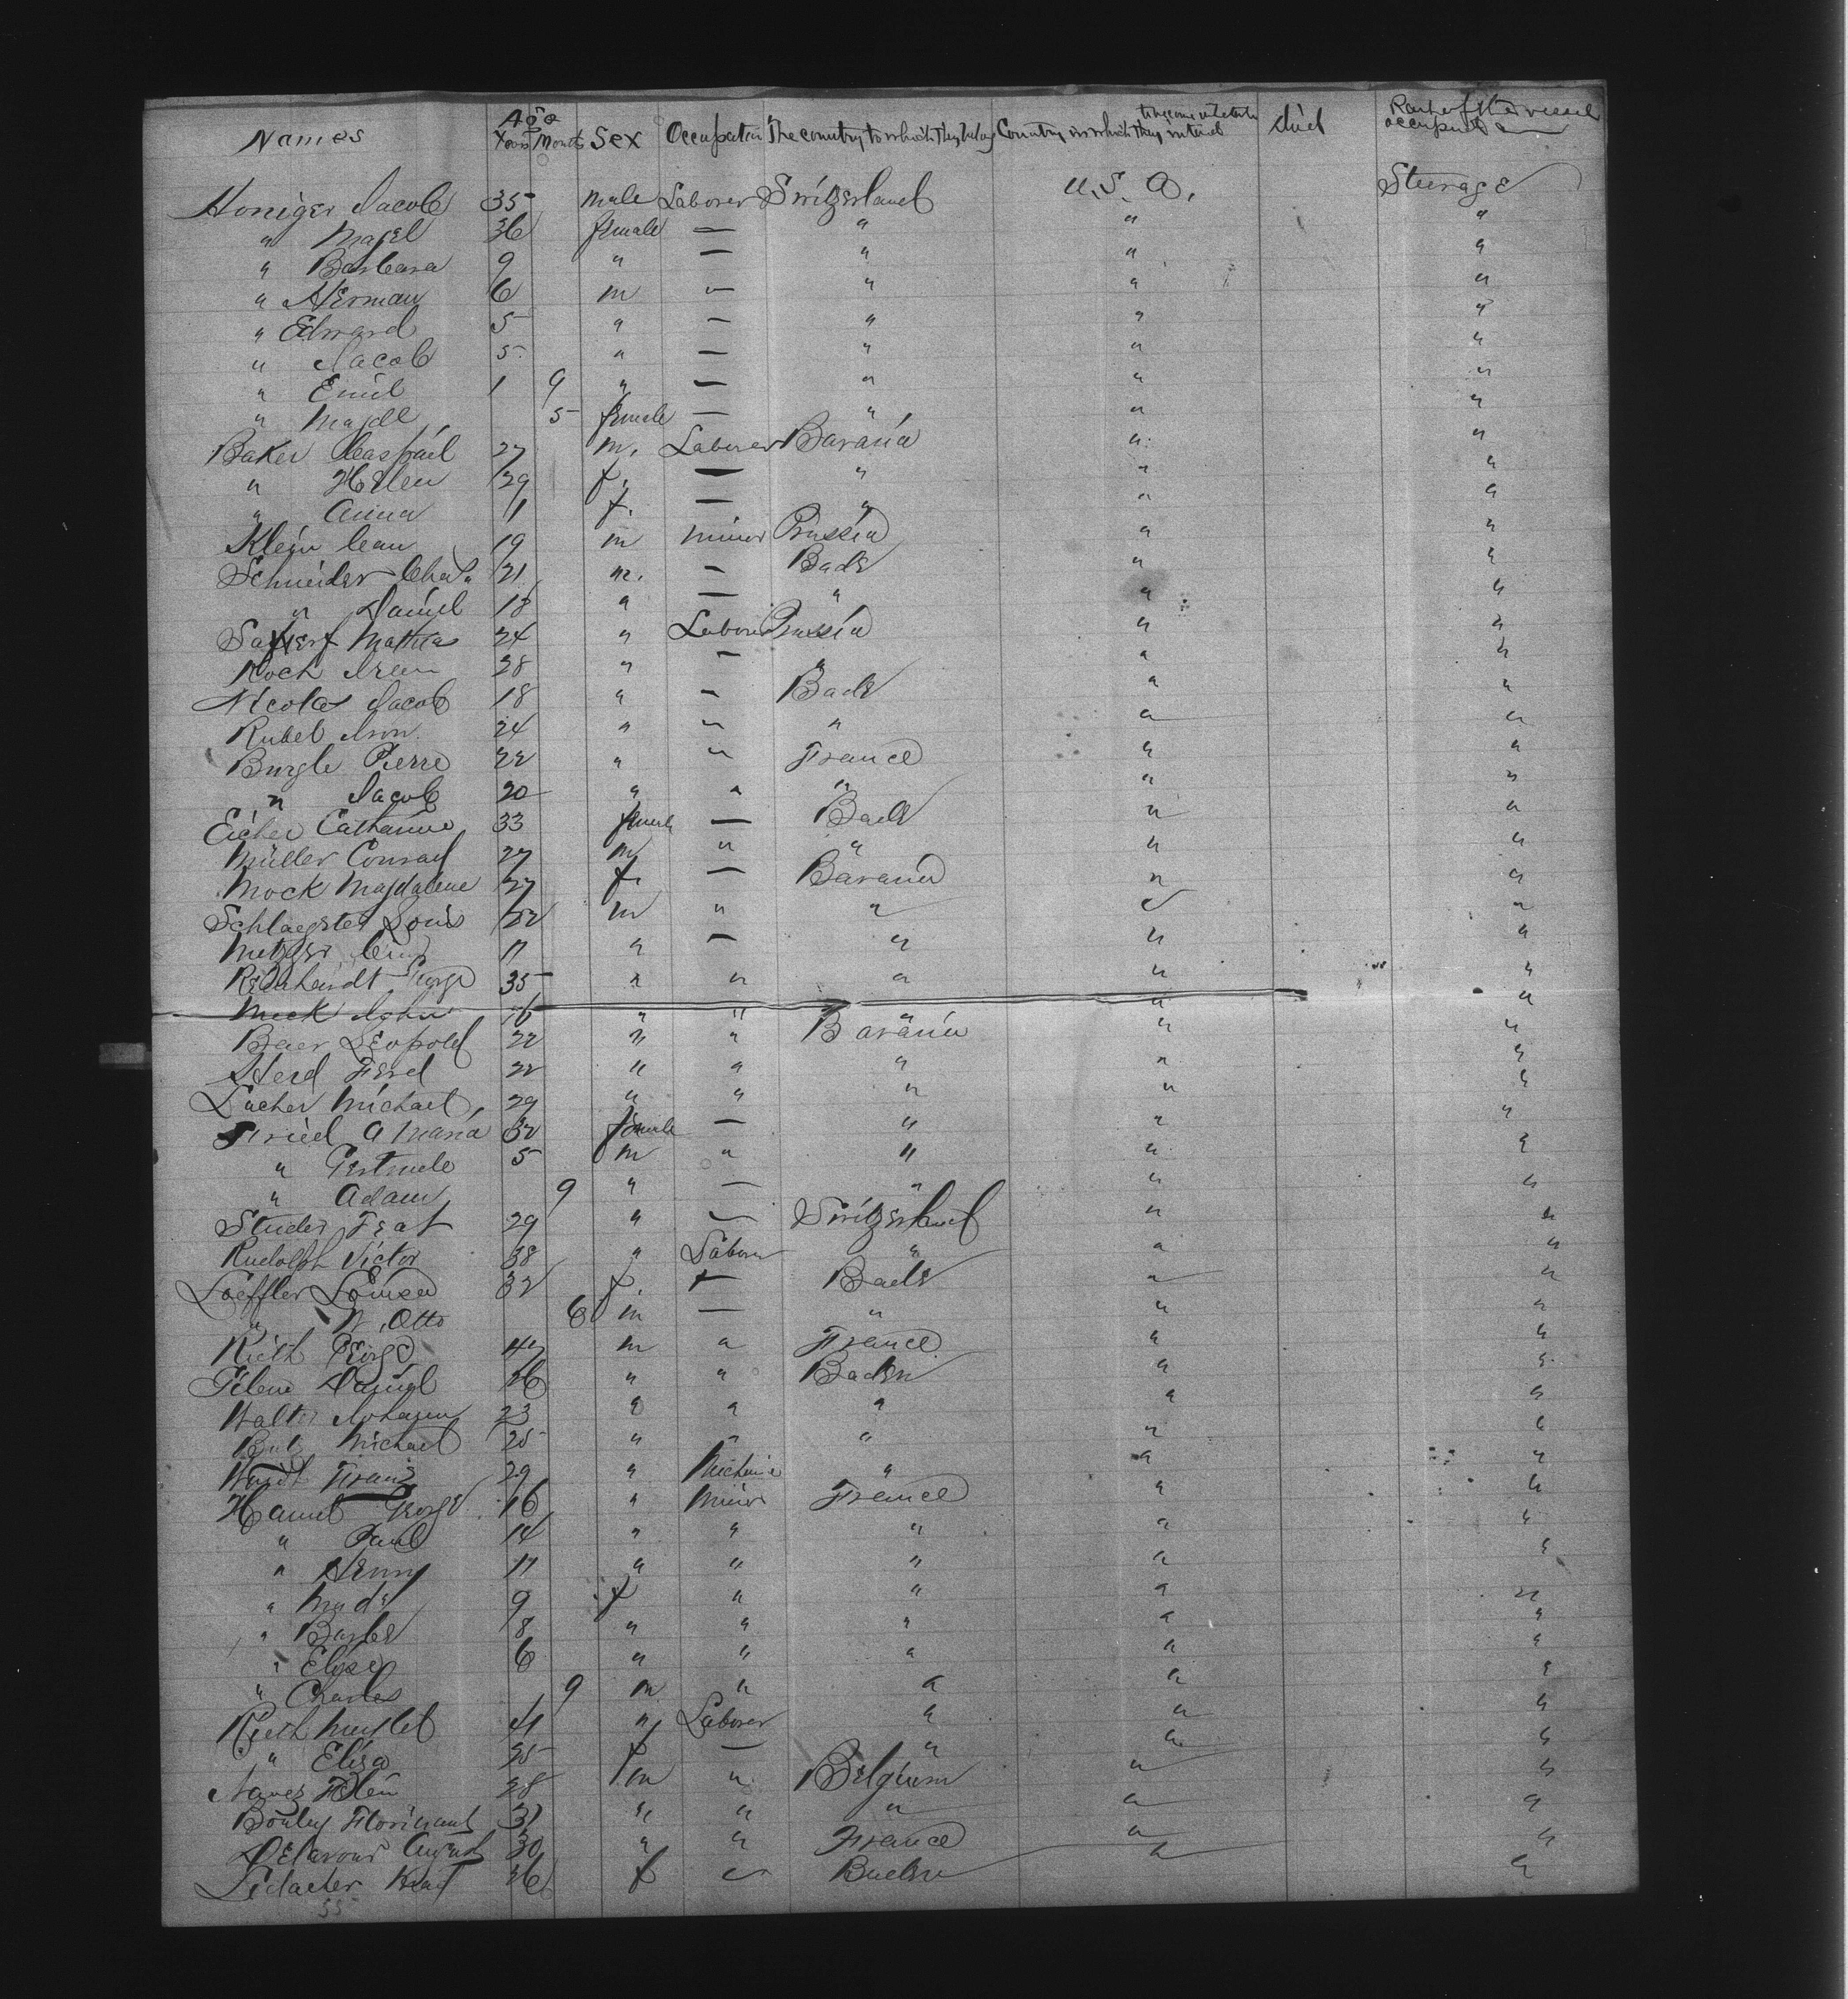 Names Age Years Months Sex Occupation The country to which they belong Country in which they intend to become inhabitants died Part of the vessel occupied
Honiger Jacob 35 male Laborer Switzerland U.S.A. Steerage
" Magel 36 female — " " "
" Barbara 9 " — " " "
" Herman 6 m — " " "
" Edward 5 " — " " "
" Jacob 5 " — " " "
" Emil 1 9 " — " " "
" 5 female — " " "
Baker 27 m. Laborer Bavaria " "
" Helen 29 f. — " " "
" Anna 11 f. — " " "
Klein 19 m minor Prussia " "
Schneider Chas 21 m. — Bade " "
" Daniel 18 " — " " "
Mathias 24 " Labour Prussia " "
Koch 28 " — " " "
Nicolas Jacob 18 " — Bade " "
Rubel 24 " " " " "
Burgle Pierre 22 " " France " "
" Jacob 20 " " " " "
Eicher Catharine 33 female — Bade " "
Müller Conrad 27 m " " " "
Mock Magdalene 27 f. — Bavaria " "
Louis 22 m " " " "
Metzger 17 " — " " "
Reinhardt George 35 " " " " "
Mock John 16 " " " " "
Baer Leopold 22 " " Bavaria " "
Herd Ferd 22 " " " " "
Lacher Michael 29 " " " " "
A Maria 32 female — " " "
" Gertrude 5 m " " " "
" Adam 9 " — " " "
Studer 29 " — Switzerland " "
Rudolph Victor 38 " Labour " " "
Loeffler Louisa 32 f. — Bade " "
" W. Otto 6 m — " " "
Rieth George 47 m " France " "
Daniel 26 " " Baden " "
Walter Johann 23 " " " " "
Butz Michael 25 " " " " "
Franz 29 " " " "
Hamel George 16 " minor France " "
" Paul 14 " " " " "
" Henry 11 " " " " "
" 9 f " " " "
" 8 " " " " "
" Elise 6 " " " " "
" Charles 9 m " " " "
Rieth 41 " Laborer " " "
" Elisa 25 f — " " "
28 m " Belgium " "
Florimant 31 " " " " "
August 30 " " France " "
36 f " Baden " "
55